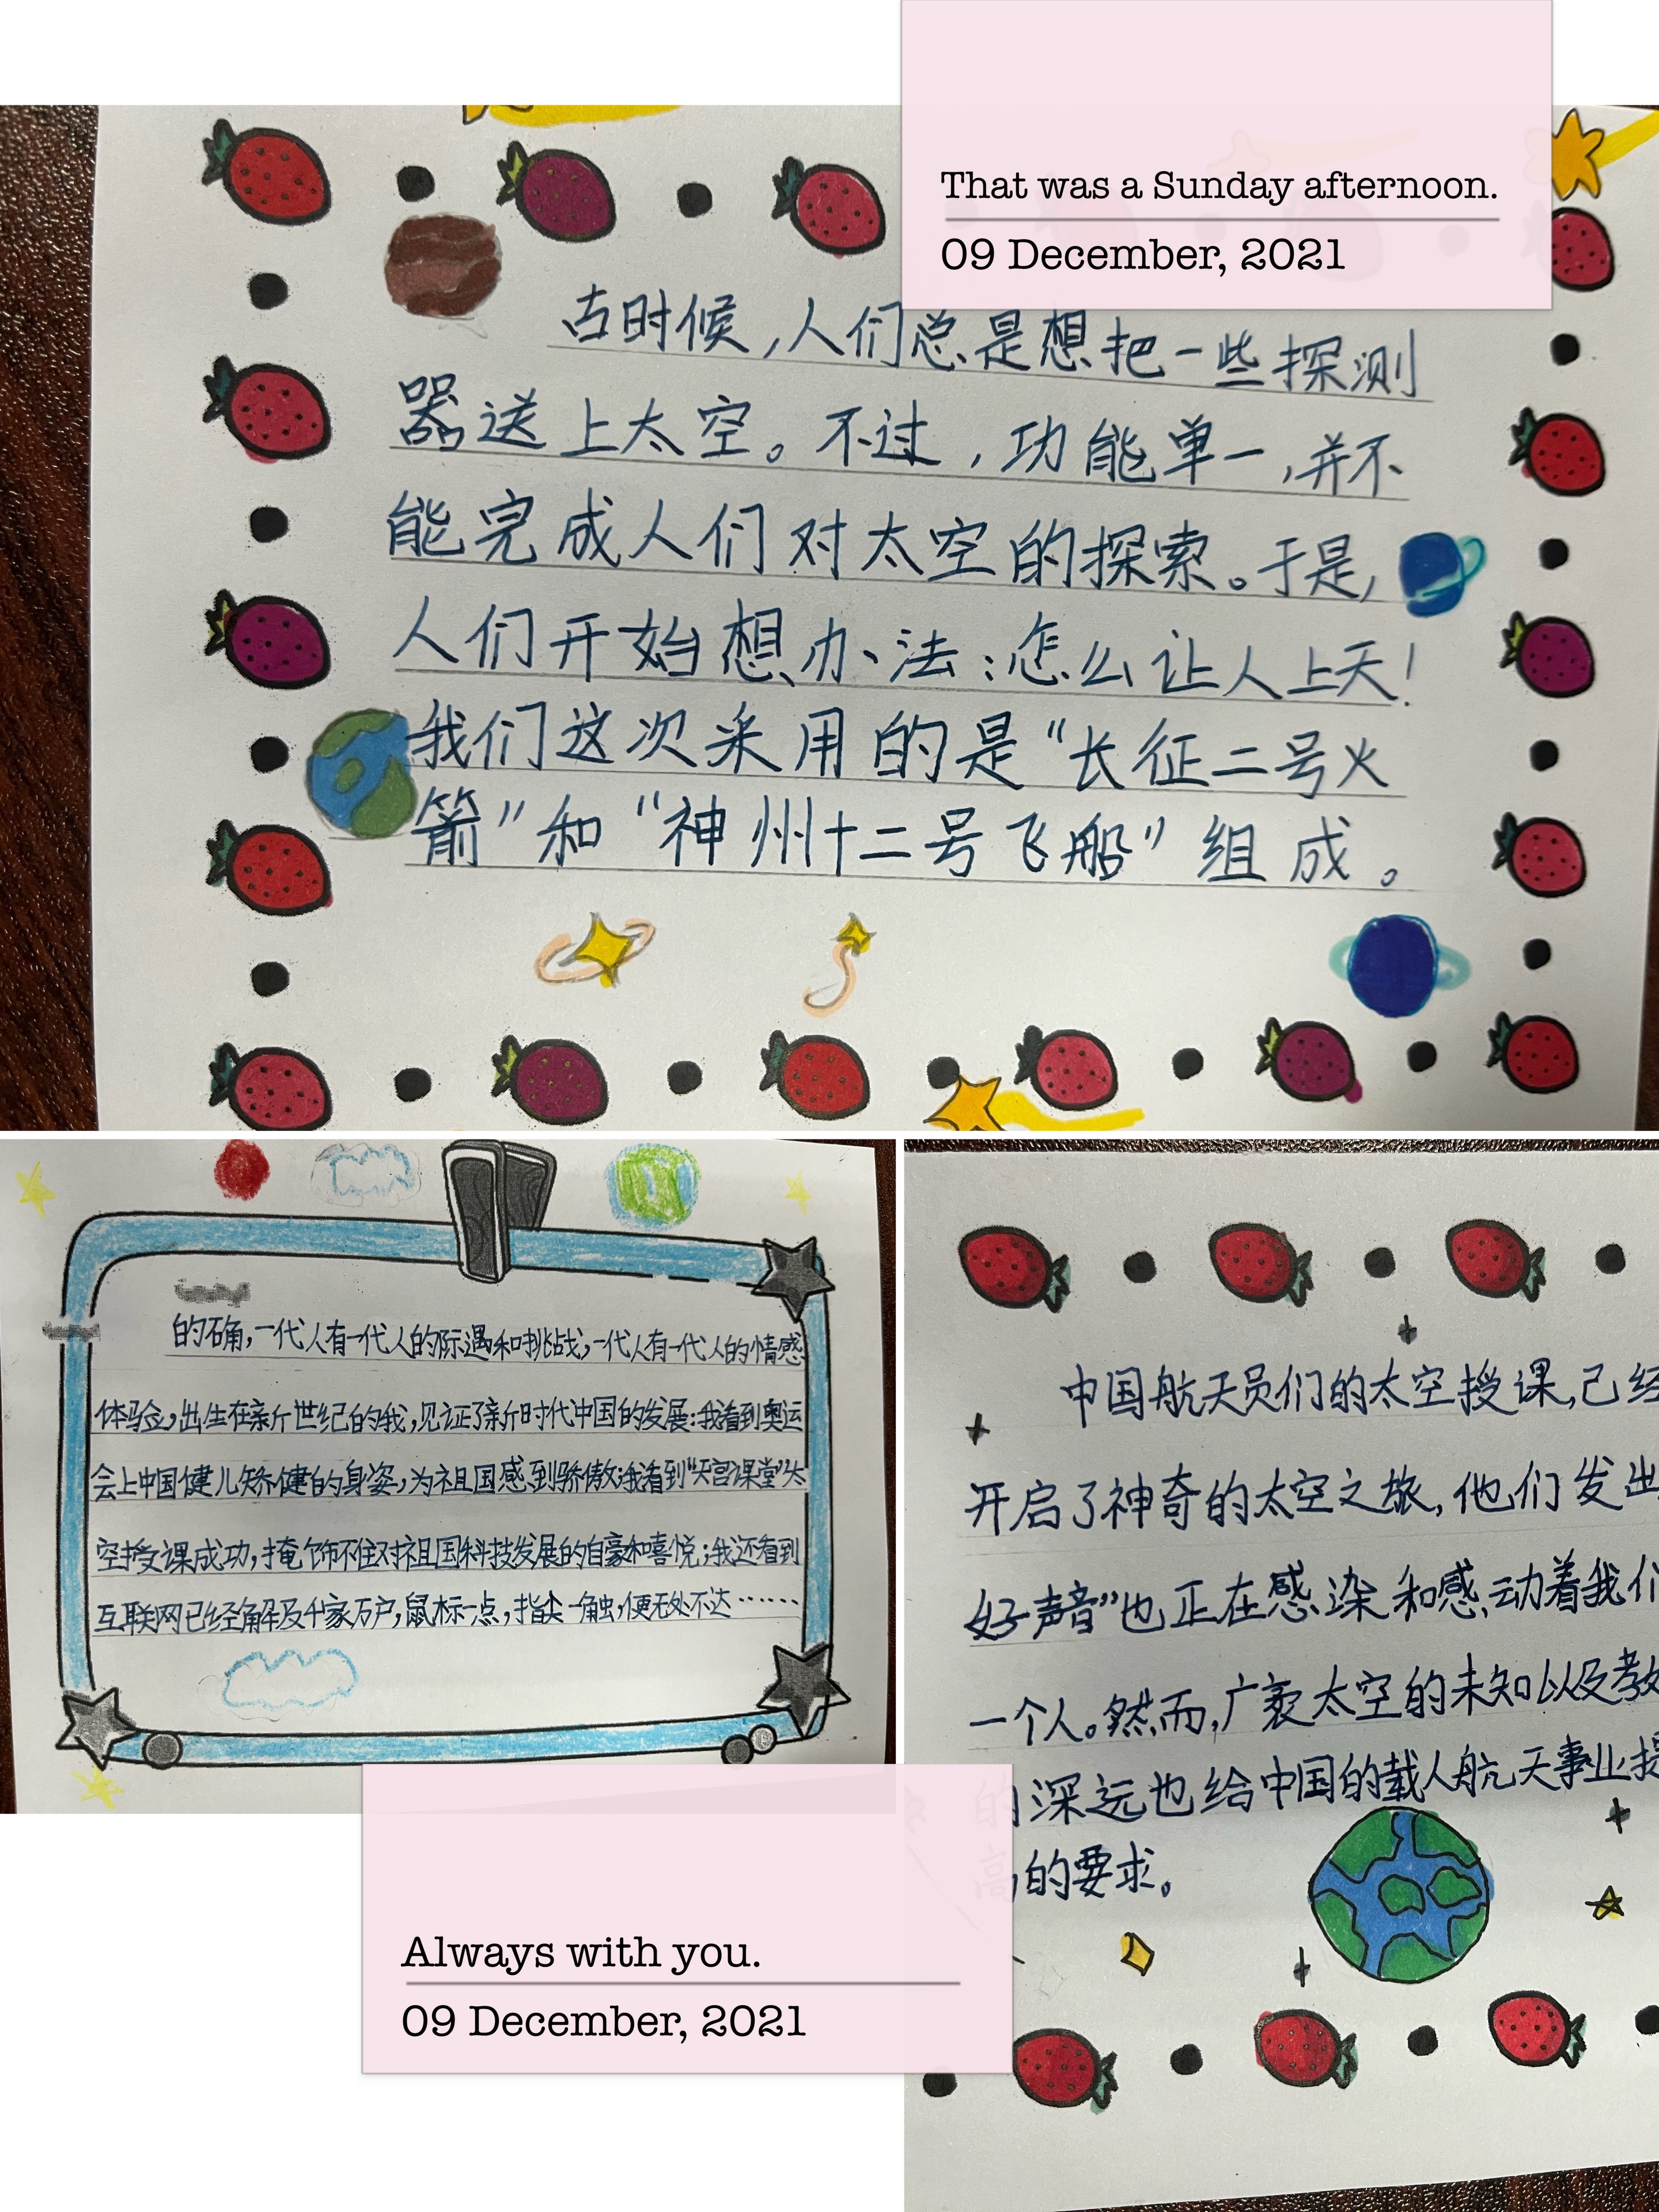 That was a Sunday afternoon.
09 December, 2021
古时候,人们总是想把一些探测
器送上太空。不过,功能单一,并不
能完成人们对太空的探索。于是,
人们开始想办法:怎么让人上天!
我们这次采用的是“长征二号火
箭”和“神州十二号飞船”组成。
的确,一代人有一代人的际遇和挑战,一代人有一代人的情感
体验,出生在新世纪的我,见证了新时代中国的发展:我看到奥运
会上中国健儿矫健的身姿,为祖国感到骄傲;我看到“天宫课堂”太
空授课成功,掩饰不住对祖国科技发展的自豪和喜悦;我还看到
互联网已经触及千家万户,鼠标一点,指尖一触,便无处不达……
中国航天员们的太空授课,已经
开启了神奇的太空之旅,他们发出
好声音”也正在感染和感动着我们
一个人。然而,广袤太空的未知以及教
的深远也给中国的载人航天事业提
高的要求。
Always with you.
09 December, 2021